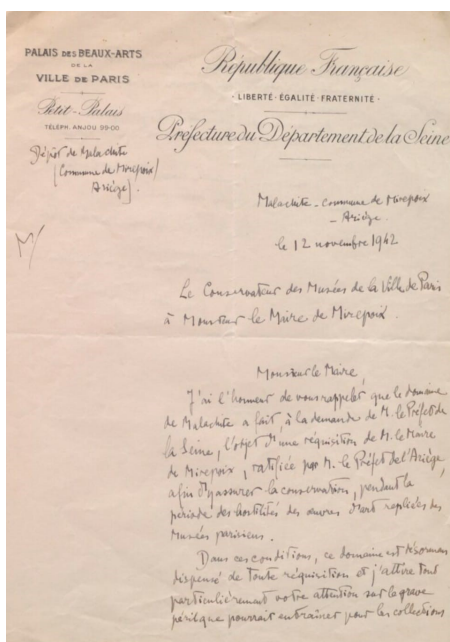 PALAIS DES BEAUX-ARTS
DE LA
VILLE DE PARIS
Petit-Palais
TÉLÉPH. ANJOU 99-00
Dépôt de Malachite
(Commune de Mirepoix)
Ariège).
République Française
· LIBERTÉ · ÉGALITÉ · FRATERNITÉ ·
Préfecture du Département de la Seine
Malachite - commune de Mirepoix
- Ariège.
le 12 novembre 1942
M/
Le Conservateur des Musées de la Ville de Paris
à Monsieur le Maire de Mirepoix.
Monsieur le Maire,
J'ai l'honneur de vous rappeler que le domaine
de Malachite a fait, à la demande de M. le Préfet de
la Seine, l'objet d'une réquisition de M. le Maire
de Mirepoix, ratifiée par M. le Préfet de l'Ariège,
afin d'y assurer la conservation, pendant la
période des hostilités des œuvres d'art repliées des
Musées parisiens.
Dans ces conditions, ce domaine est désormais
dispensé de toute réquisition et j'attire tout
particulièrement votre attention sur le grave
péril que pourrait entraîner pour les collections